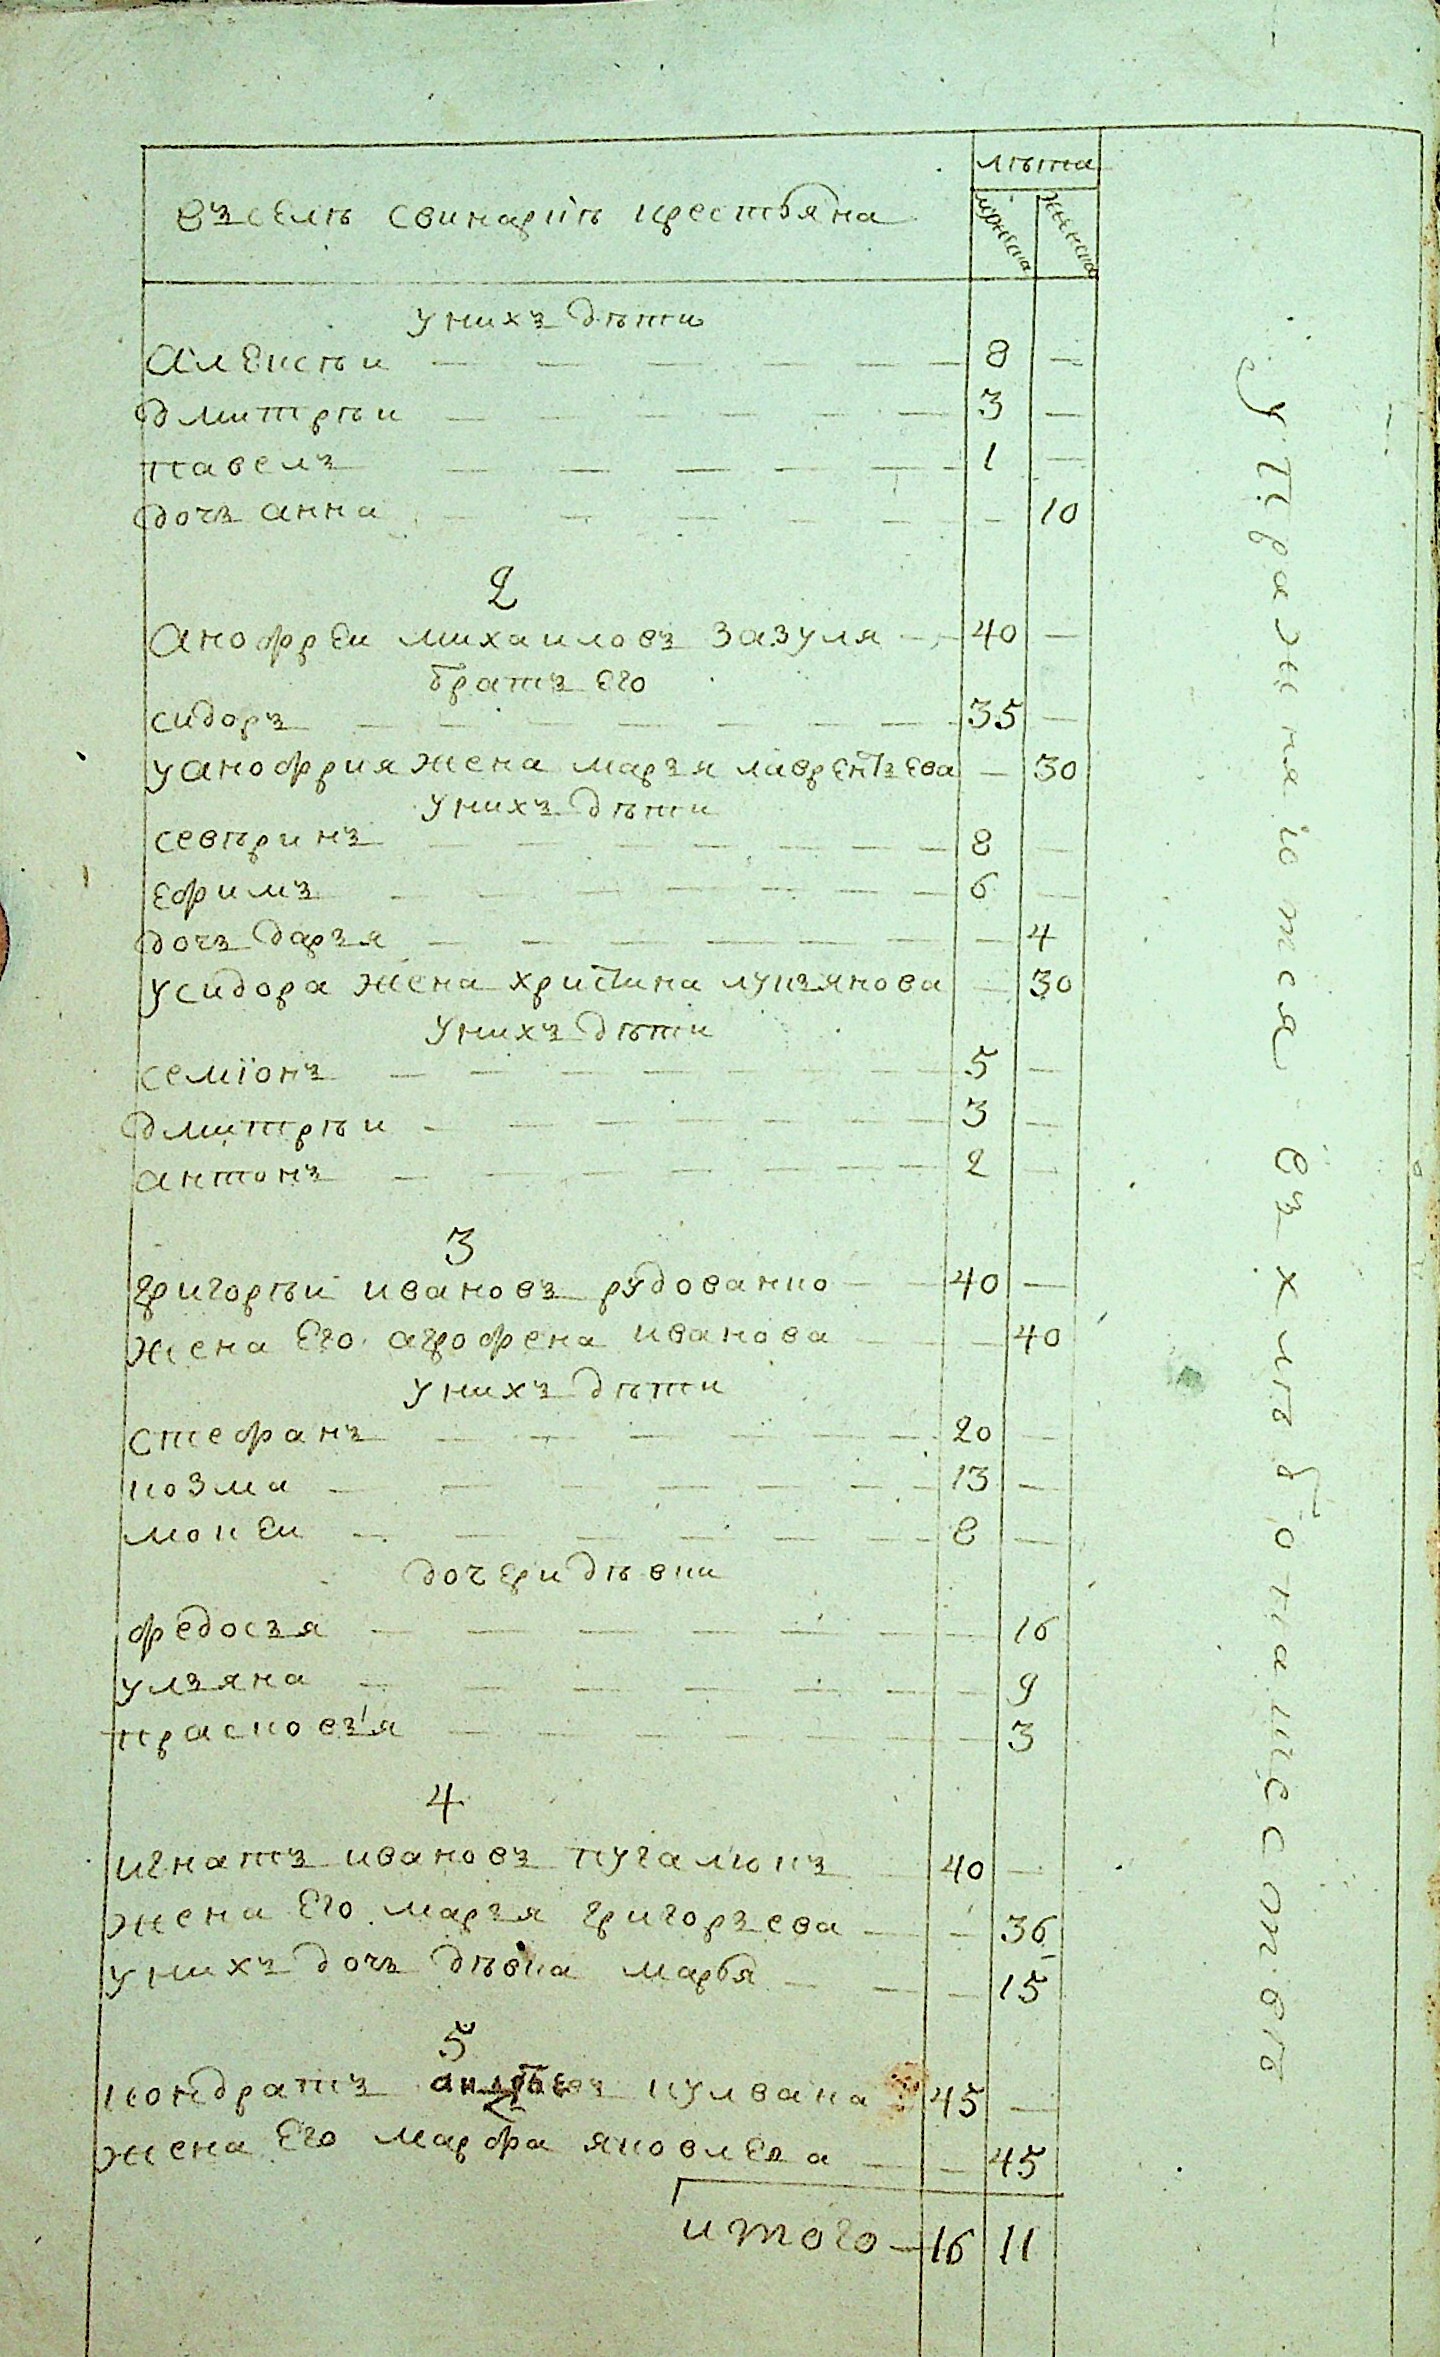 въ селѣ свинариѣ крестьяна
лѣта
мужеска
женска
у нихъ дѣти
алексѣи — 8 —
дмитрѣи — 3 —
павелъ — 1 —
дочъ анна — — 10
2
анофреи михаиловъ зазуля — 40 —
братъ его
сидоръ — 35 —
у анофрия жена маръя лаврентъева — 30
у нихъ дѣти
севѣринъ — 8 —
ефимъ — 6 —
дочъ даръя — — 4
у сидора жена христина лукъянова — 30
у нихъ дѣти
семїонъ — 5 —
дмитрѣи — 3 —
антонъ — 2 —
3
григорѣи ивановъ рудованко — 40 —
жена его агрофена иванова — — 40
у нихъ дѣти
стефанъ — 20 —
козма — 13 —
мокеи — 8 —
дочери дѣвки
федосъя — — 16
улъяна — — 9
прасковъя — — 3
4
игнатъ ивановъ пугалюкъ 40 —
жена его маръя григоръева — — 36
у нихъ дочъ дѣвка марья — — 15
5
кондратъ кулвана 45 —
жена его марфа яковлева — — 45
итого — 16 11
упражняются въ хлѣбопашествѣ